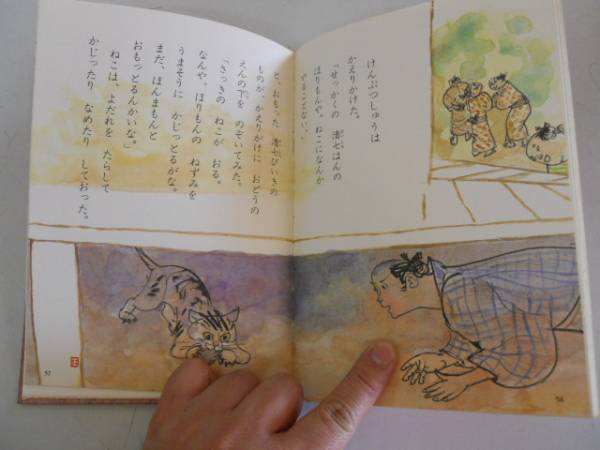 けんぶつしゅうは
かえりかけた。
「せっかくの 浩七はんの
ほりもんや。ねこになんか
やることない。」
と、おもった 浩七びいきの
ものが、かえりがけに おどうの
えんの下を のぞいてみた。
「さっきの ねこが おる。
なんや、ほりもんの ねずみを
うまそうに かじっとるがな。
まだ、ほんまもんと
おもっとるんかいな。」
ねこは、よだれを たらして
かじったり なめたり しておった。
57
56